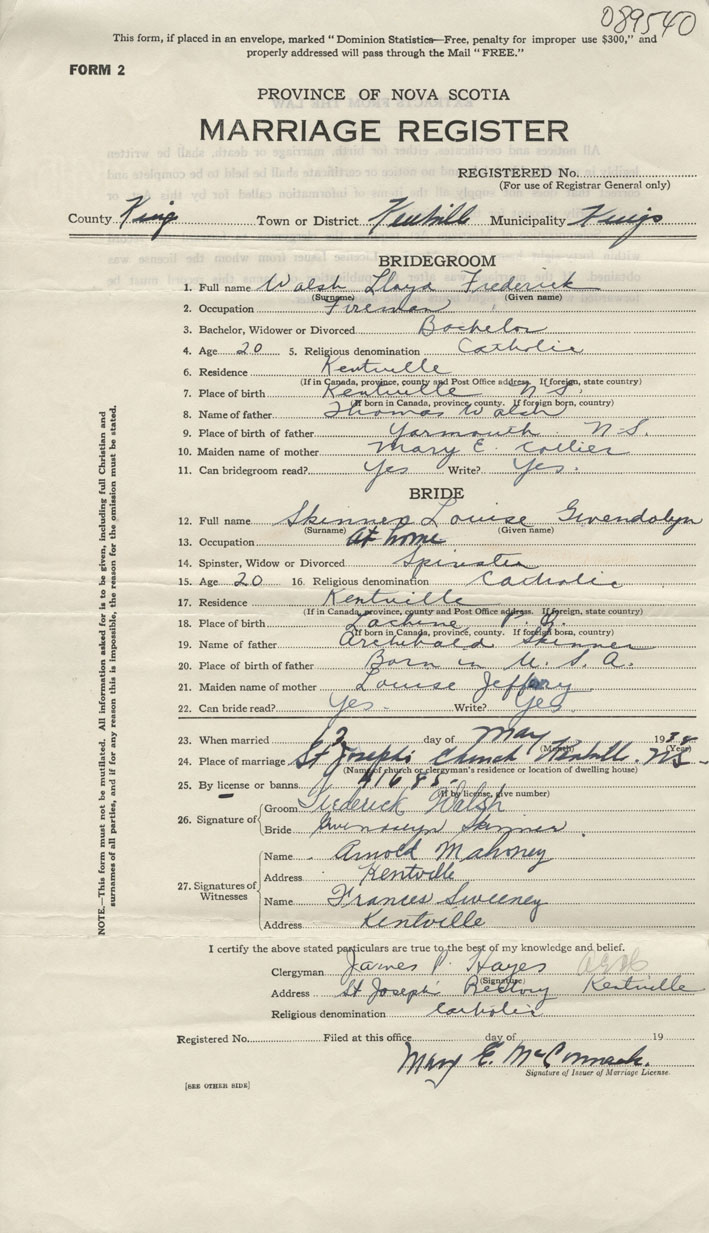 089540
This form, if placed in an envelope, marked "Dominion Statistics—Free, penalty for improper use $300," and
properly addressed will pass through the Mail "FREE."
FORM 2
PROVINCE OF NOVA SCOTIA
MARRIAGE REGISTER
REGISTERED No.
(For use of Registrar General only)
County King Town or District Kentville Municipality Kings
BRIDEGROOM
1. Full name Walsh Lloyd Frederick
(Surname) (Given name)
2. Occupation Fireman
3. Bachelor, Widower or Divorced Bachelor
4. Age 20 5. Religious denomination Catholic
6. Residence Kentville
(If in Canada, province, county and Post Office address. If foreign, state country)
7. Place of birth Kentville N.S.
(If born in Canada, province, county. If foreign born, country)
8. Name of father Thomas Walsh
9. Place of birth of father Yarmouth N.S.
10. Maiden name of mother Mary E. Collier
11. Can bridegroom read? Yes Write? Yes.
BRIDE
12. Full name Skinner Louise Gwendolyn
(Surname) (Given name)
13. Occupation At home
14. Spinster, Widow or Divorced Spinster
15. Age 20 16. Religious denomination Catholic
17. Residence Kentville
(If in Canada, province, county and Post Office address. If foreign, state country)
18. Place of birth Lachine P.Q.
(If born in Canada, province, county. If foreign born, country)
19. Name of father Archibald Skinner
20. Place of birth of father Born in U.S.A.
21. Maiden name of mother Louise Jeffery
22. Can bride read? Yes. Write? Yes.
23. When married day of May 1938
(Month) (Year)
24. Place of marriage St Joseph's Church Kentville. NS-
(Name of church or clergyman's residence or location of dwelling house)
25. By license or banns 41685-
(If by license, give number)
26. Signature of
Groom Frederick Walsh
Bride Gwendolyn Skinner
27. Signatures of Witnesses
Name Arnold Mahoney
Address Kentville
Name Frances Sweeney
Address Kentville
I certify the above stated particulars are true to the best of my knowledge and belief.
Clergyman James P. Hayes
(Signature)
Address St Joseph's Rectory Kentville
Religious denomination Catholic
Registered No. Filed at this office day of 19
Mary E. McCormack.
Signature of Issuer of Marriage License
[SEE OTHER SIDE]
NOTE.—This form must not be mutilated. All information asked for is to be given, including full Christian and
surnames of all parties, and if for any reason this is impossible, the reason for the omission must be stated.